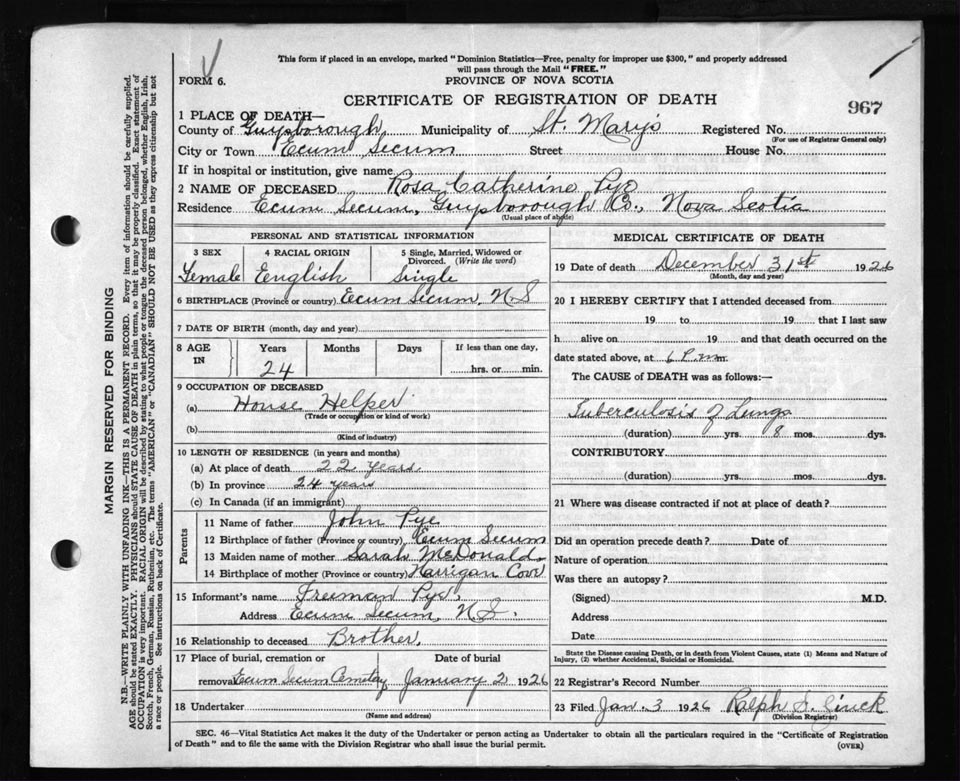 This form if placed in an envelope, marked "Dominion Statistics—Free, penalty for improper use $300," and properly addressed
will pass through the Mail "FREE."
FORM 6.
PROVINCE OF NOVA SCOTIA
CERTIFICATE OF REGISTRATION OF DEATH
967
1 PLACE OF DEATH—
County of Guysborough, Municipality of St. Mary's Registered No.
(For use of Registrar General only)
City or Town Ecum Secum Street House No.
If in hospital or institution, give name
2 NAME OF DECEASED Rosa Catherine Pye
Residence Ecum Secum, Guysborough Co., Nova Scotia
(Usual place of abode)
PERSONAL AND STATISTICAL INFORMATION
3 SEX 4 RACIAL ORIGIN 5 Single, Married, Widowed or
Divorced. (Write the word)
Female English Single
6 BIRTHPLACE (Province or country) Ecum Secum, N S
7 DATE OF BIRTH (month, day and year)
8 AGE IN Years Months Days If less than one day,
24 hrs. or min.
9 OCCUPATION OF DECEASED
(a) House Helper
(Trade or occupation or kind of work)
(b)
(Kind of industry)
10 LENGTH OF RESIDENCE (in years and months)
(a) At place of death 22 years
(b) In province 24 years
(c) In Canada (if an immigrant)
Parents
11 Name of father John Pye
12 Birthplace of father (Province or country) Ecum Secum
13 Maiden name of mother Sarah McDonald
14 Birthplace of mother (Province or country) Harrigan Cove
15 Informant's name Freeman Pye,
Address Ecum Secum, N S.
16 Relationship to deceased Brother,
17 Place of burial, cremation or Date of burial
removal Ecum Secum Cemetery January 2 1926
18 Undertaker
(Name and address)
MEDICAL CERTIFICATE OF DEATH
19 Date of death December 31st 1926
(Month, day and year)
20 I HEREBY CERTIFY that I attended deceased from
19 to 19 that I last saw
h alive on 19 and that death occurred on the
date stated above, at 6 P.m. m.
The CAUSE of DEATH was as follows:—
Tuberculosis of Lungs
(duration) yrs. 8 mos. dys.
CONTRIBUTORY
(duration) yrs. mos. dys.
21 Where was disease contracted if not at place of death?
Did an operation precede death? Date of
Nature of operation
Was there an autopsy?
(Signed) M.D.
Address
Date
State the Disease causing Death, or in death from Violent Causes, state (1) Means and Nature of
Injury, (2) whether Accidental, Suicidal or Homicidal.
22 Registrar's Record Number
23 Filed Jan. 3 1926 Ralph S.
(Division Registrar)
SEC. 46—Vital Statistics Act makes it the duty of the Undertaker or person acting as Undertaker to obtain all the particulars required in the "Certificate of Registration
of Death" and to file the same with the Division Registrar who shall issue the burial permit.
(OVER)
MARGIN RESERVED FOR BINDING
N.B.—WRITE PLAINLY WITH UNFADING INK—THIS IS A PERMANENT RECORD. Every item of information should be carefully supplied.
AGE should be stated EXACTLY. PHYSICIANS should STATE CAUSE OF DEATH in plain terms, so that it may be properly classified. Exact statement of
OCCUPATION is very important. RACIAL ORIGIN will be described by stating to what people or tongue the deceased person belonged, whether English, Irish,
Scotch, French, German, Russian, Ruthenian, etc. The terms "AMERICAN" or "CANADIAN" SHOULD NOT BE USED as they express citizenship but not
a race or people. See instructions on back of Certificate.